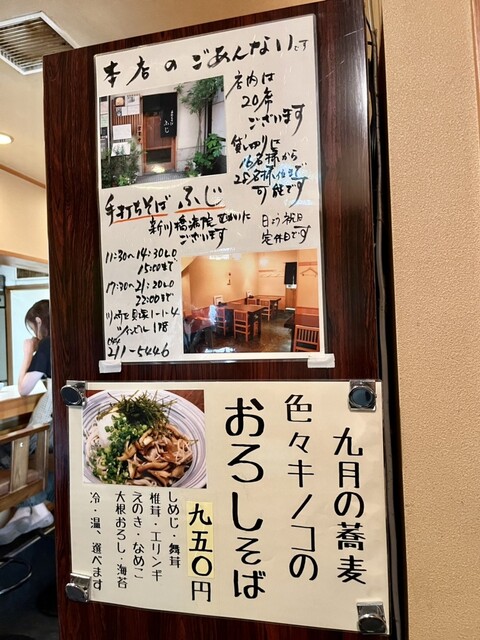 本店のごあんないです
店内は
20席
ございます
貸し切りに
16名様から
25名様位まで
可能です
手打ちそば ふじ
新川橋病院 むかいに
ございます
日よう祝日
定休日です
11:30〜14:30LO
15:00まで
17:30〜21:20LO
22:00まで
211-5446
九月の蕎麦
色々キノコの
おろしそば
九五〇円
しめじ・舞茸
椎茸・エリンギ
えのき・なめこ
大根おろし・海苔
冷・温、選べます